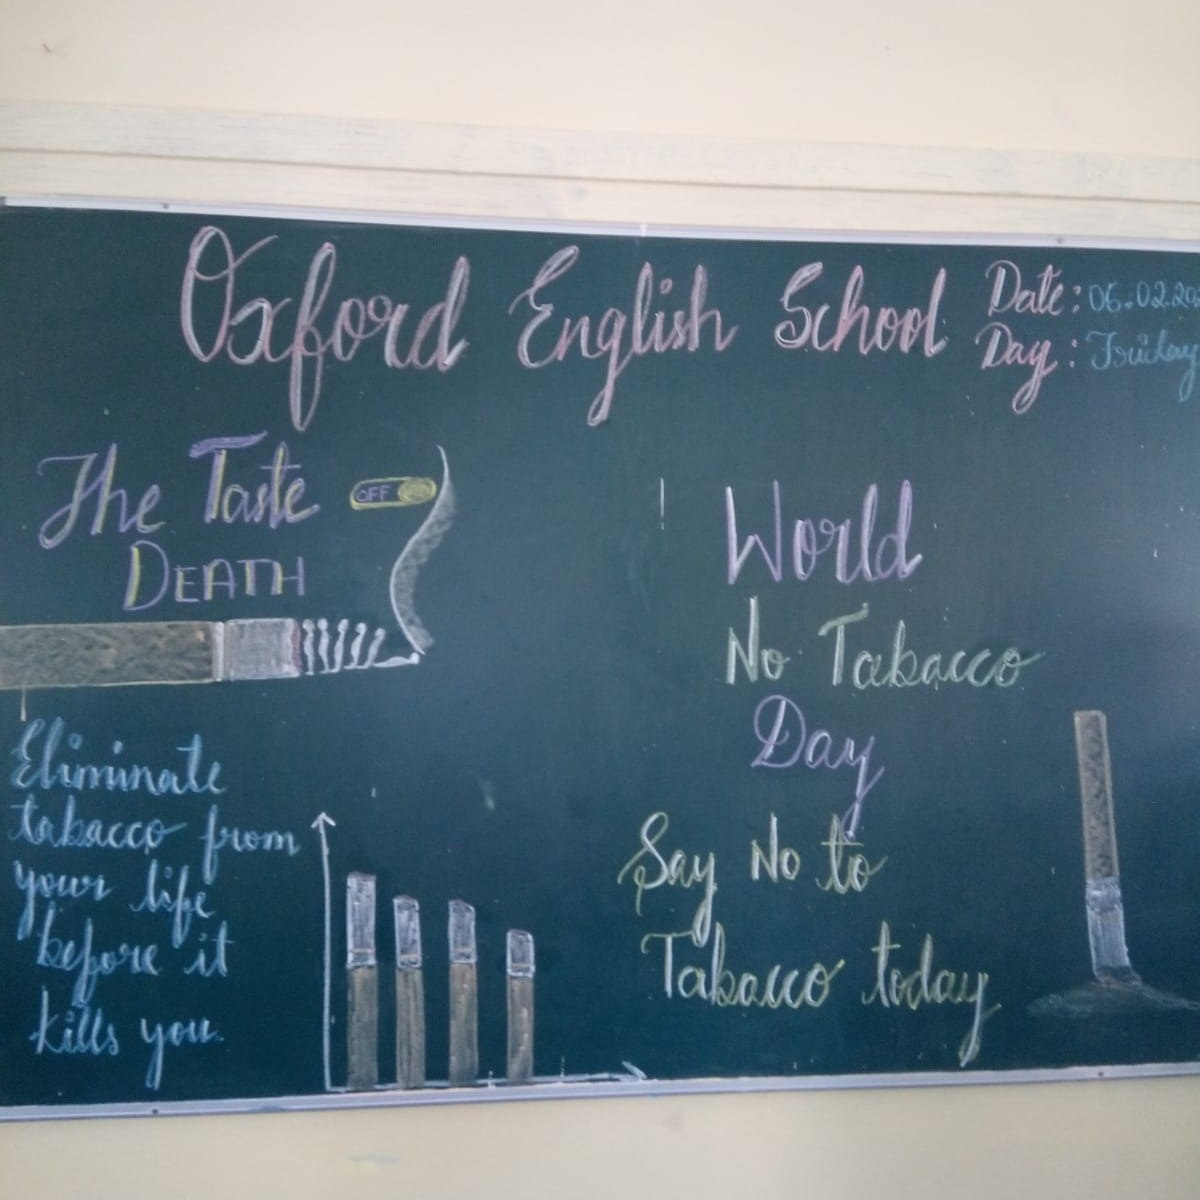 Oxford English School
Date: 06.02.20
Day: Friday
The Taste
OFF
DEATH
World
No Tabacco
Day
Eliminate
tabacco from
your life
before it
kills you.
Say No to
Tabacco today